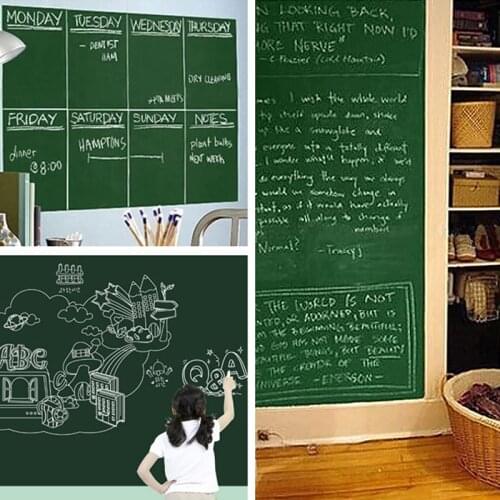 MONDAY TUESDAY WEDNESDAY THURSDAY
- DENTIST
11AM
DRY CLEANING
PTA MEETS
FRIDAY SATURDAY SUNDAY NOTES
dinner
@ 8:00
HAMPTONS
plant bulbs
NEXT WEEK
ABC
Q&A
N LOOKING BACK,
G THAT RIGHT NOW I'D
MORE NERVE"
- C. Frazier (Cold Mountain)
mes I wish the whole world
upside down, shake
up like a snowglobe and
everyone into a totally different
I wonder what'd happen, if we'd
do everything the way we always
would we somehow change in
that, as if it would have actually
possible all along to change of
Normal? - Tracey J
THE WORLD IS NOT
OR ADORNED, BUT IS
M THE BEGINNING BEAUTIFUL;
GOD HAS NOT MADE SOME
THINGS, BUT BEAUTY
THE CREATOR OF THE
UNIVERSE - EMERSON -